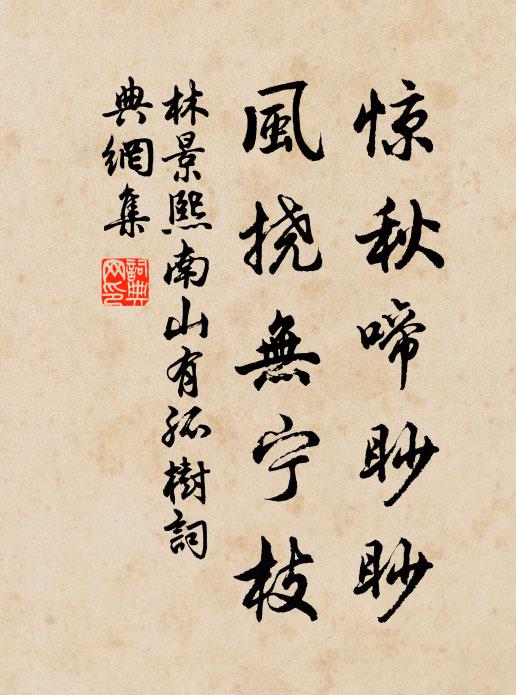 惊秋啼眇眇
風挠無宁枝
林景熙南山有孤樹詞
典網集
詞典
网印